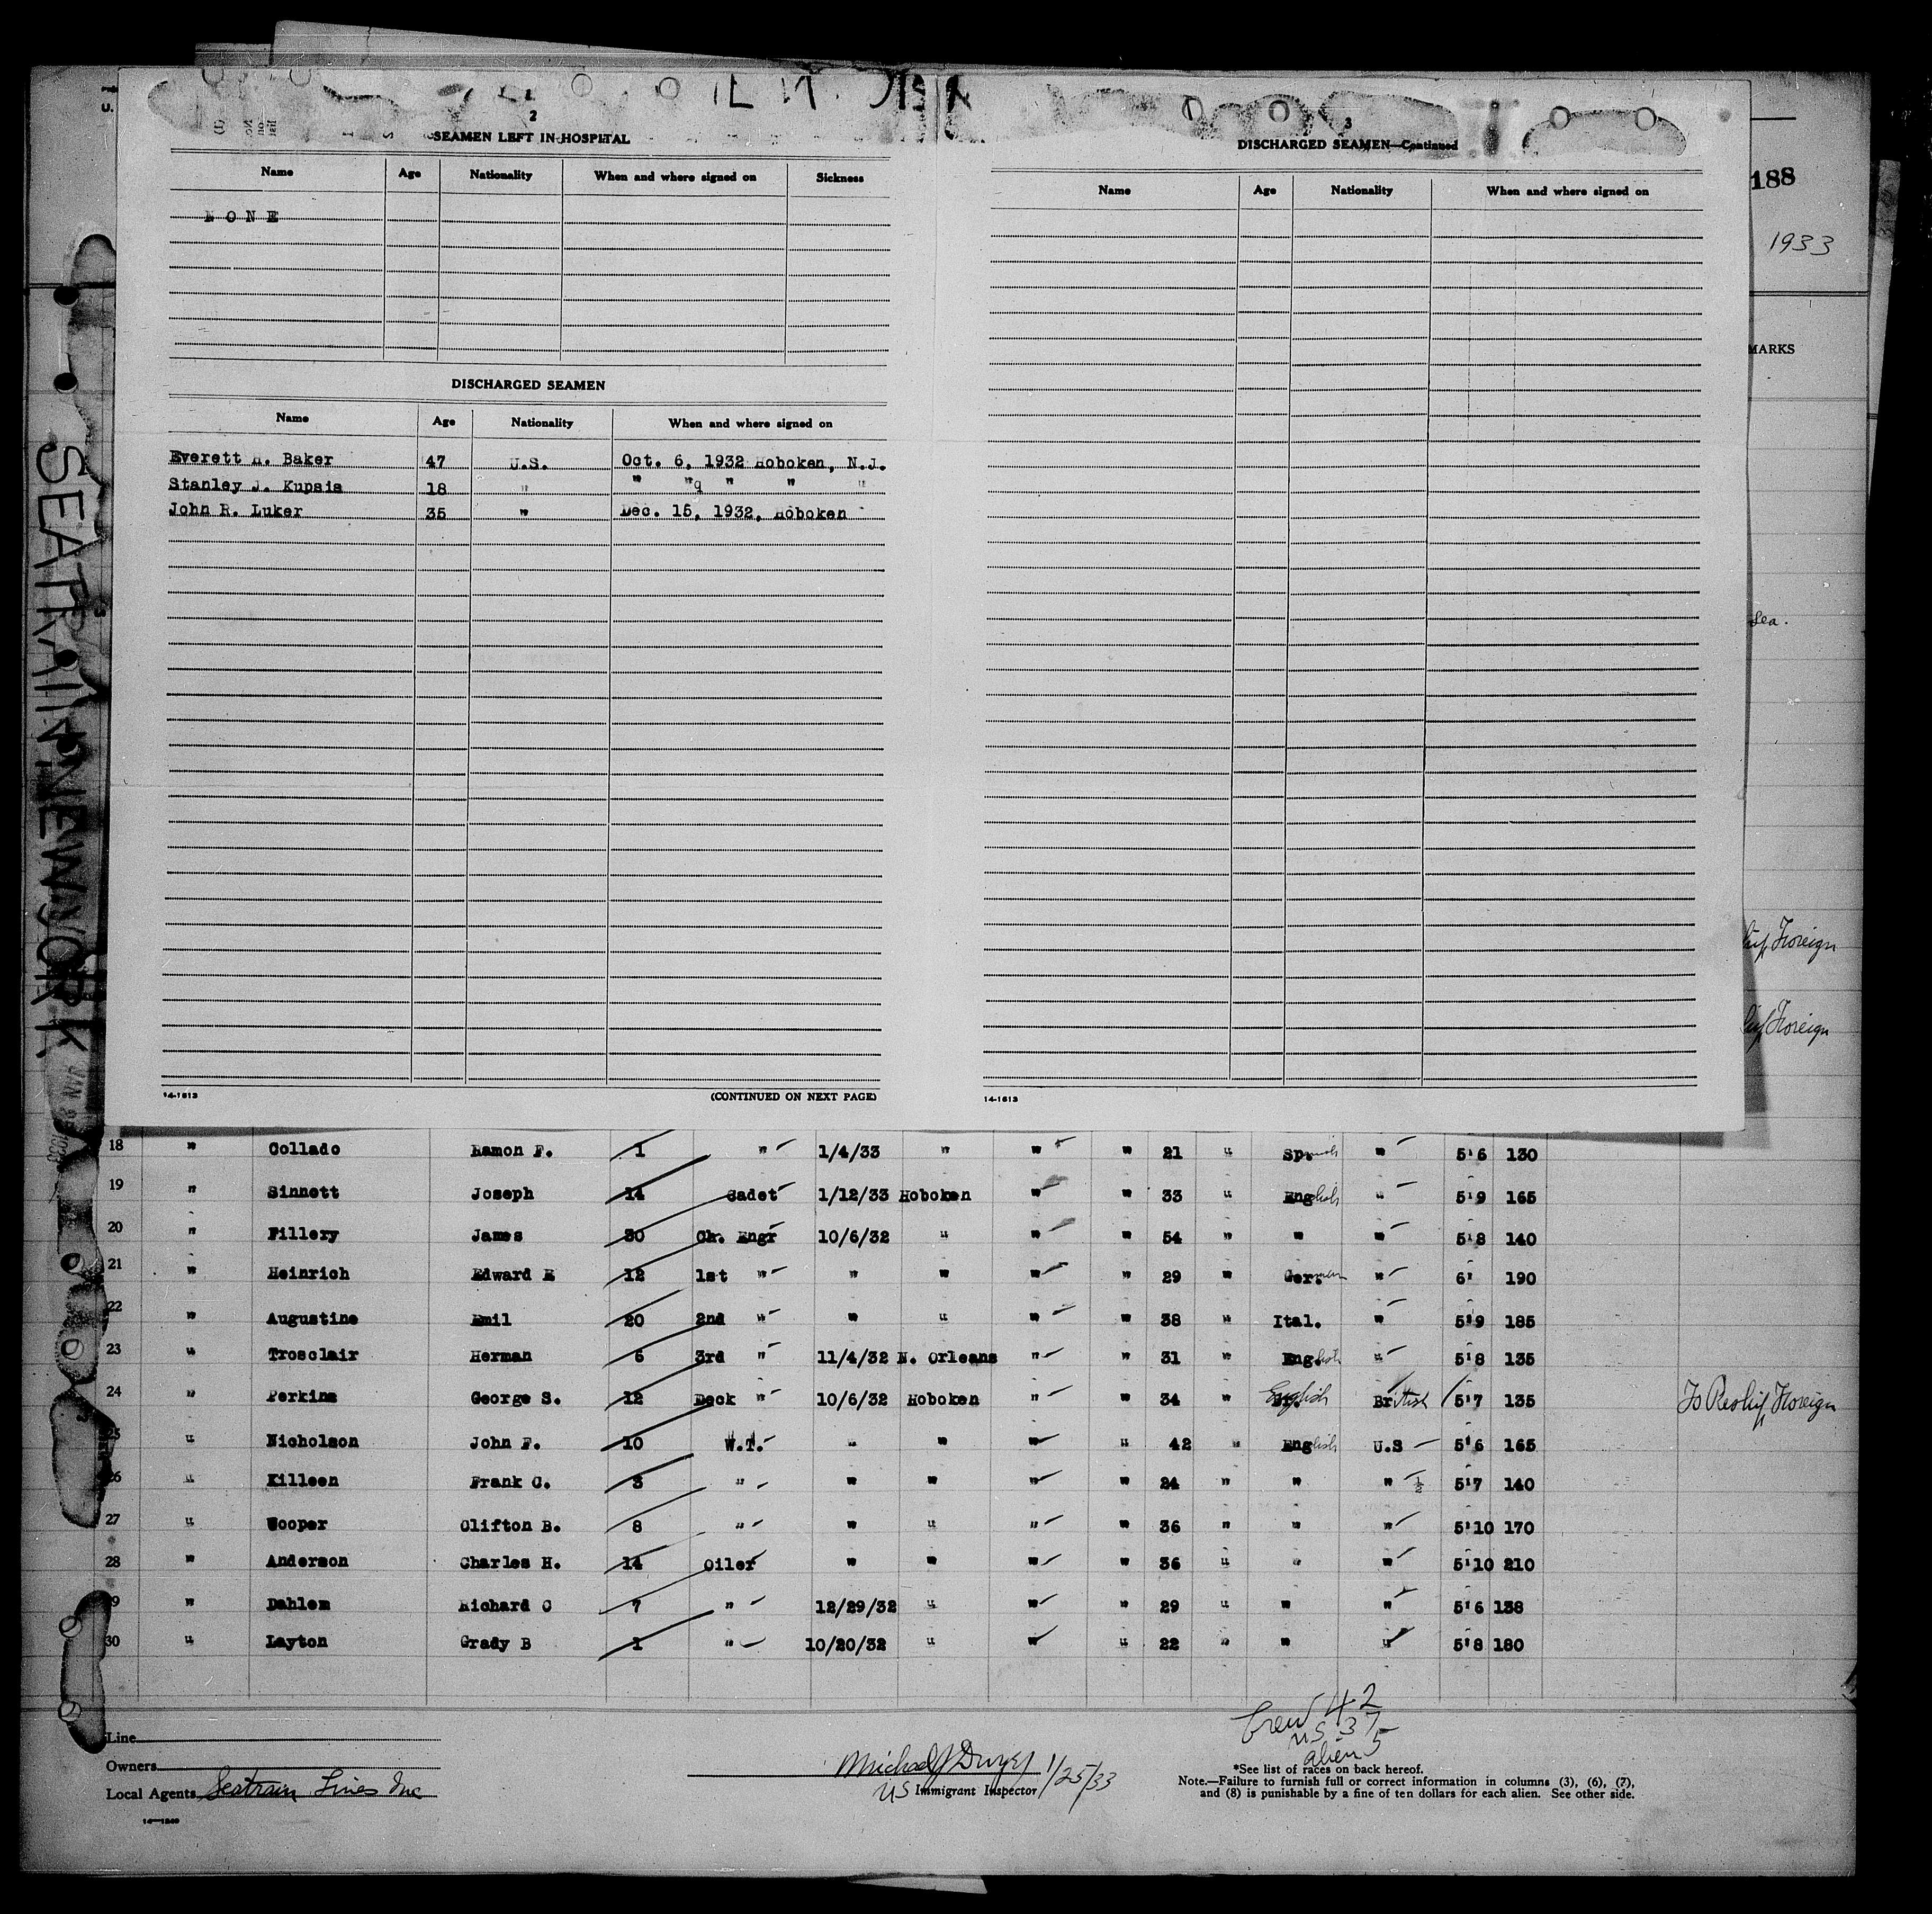 2
SEAMEN LEFT IN HOSPITAL
Name Age Nationality When and where signed on Sickness
NONE
DISCHARGED SEAMEN
Name Age Nationality When and where signed on
Everett H. Baker 47 U.S. Oct. 6, 1932 Hoboken, N.J.
Stanley J. Kupsis 18 " " "q " " "
John R. Luker 35 " Dec. 15, 1932, Hoboken
14-1613 (CONTINUED ON NEXT PAGE)
3
DISCHARGED SEAMEN—Continued
Name Age Nationality When and where signed on
14-1613
188
1933
MARKS
Sea.
Foreign
Foreign
SEATRAIN NEW YORK
18 " Collado Ramon F. 1 " 1/4/33 " " " 21 " Spanish " 5'6 130
19 " Sinnett Joseph 14 Cadet 1/12/33 Hoboken " " 33 " English " 5'9 165
20 " Fillery James 30 Ch. Engr 10/6/32 " " " 54 " " " 5'8 140
21 " Heinrich Edward E 12 1st " " " " " 29 " German " 6' 190
22 " Augustine Emil 20 2nd " " " " " 38 " Ital. " 5'9 185
23 " Trosclair Herman 6 3rd " 11/4/32 N. Orleans " " 31 " English " 5'8 135
24 " Perkins George S. 12 Deck " 10/6/32 Hoboken " " 34 " English British 5'7 135 To Reship Foreign
25 " Nicholson John F. 10 W.T. " " " " 42 " English U.S 5'6 165
26 " Killeen Frank C. 3 " " " " " 24 " " " 5'7 140
27 " Wooper Clifton B. 8 " " " " " 36 " " " 5'10 170
28 " Anderson Charles H. 14 Oiler " " " " 36 " " " 5'10 210
29 " Dahlem Richard C 7 " 12/29/32 " " " 29 " " " 5'6 138
30 " Layton Grady B 1 " 10/20/32 " " " 22 " " " 5'8 180
Crew 42
US 37
alien 5
Line
Owners
Local Agents Seatrain Lines Inc
14—1240
Michael J Dwyer 1/25/33
US Immigrant Inspector
*See list of races on back hereof.
Note.—Failure to furnish full or correct information in columns (3), (6), (7),
and (8) is punishable by a fine of ten dollars for each alien. See other side.